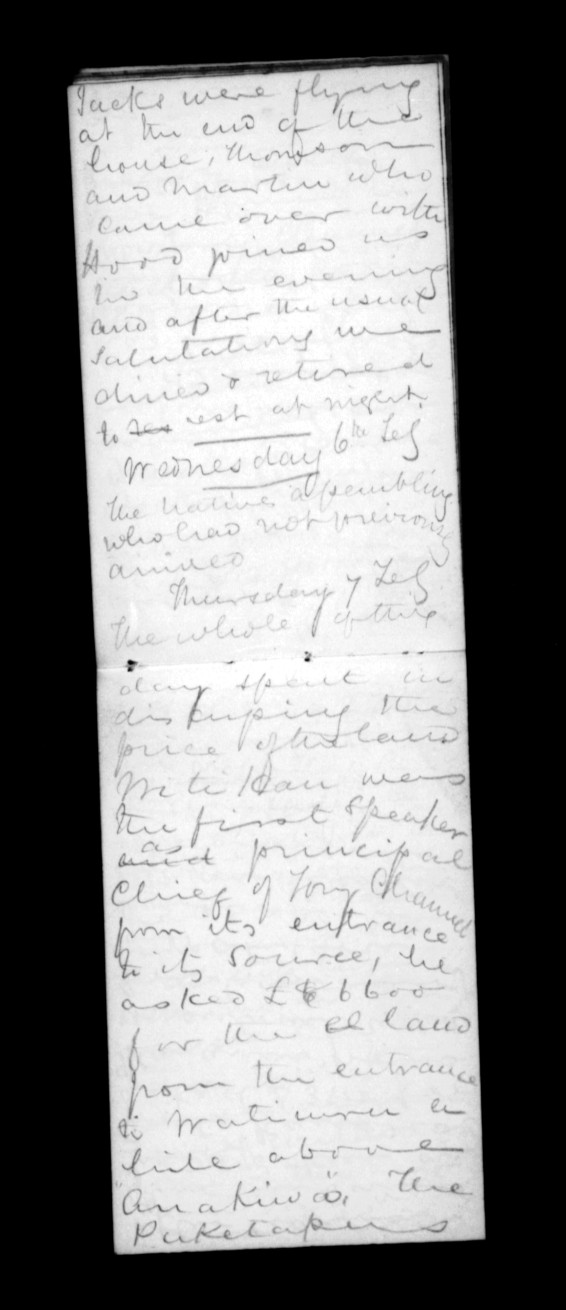 Jacks were flying
at the end of the
house, Thomson
and Martin who
came over with
Hood joined us
in the evening
and after the usual
salutations we
dined & retired
to res rest at night.
Wednesday 6th Feb
The natives assembling
who had not previously
arrived
Thursday 7 Feb
The whole of this
day spent in
discussing the
price of the land
Witikau was
the first speaker
and as principal
Chief of Tory Channel
from its entrance
to its source, he
asked £6600
for the land
from the entrance
to a
little above
Anakiwa, The
Puketapus